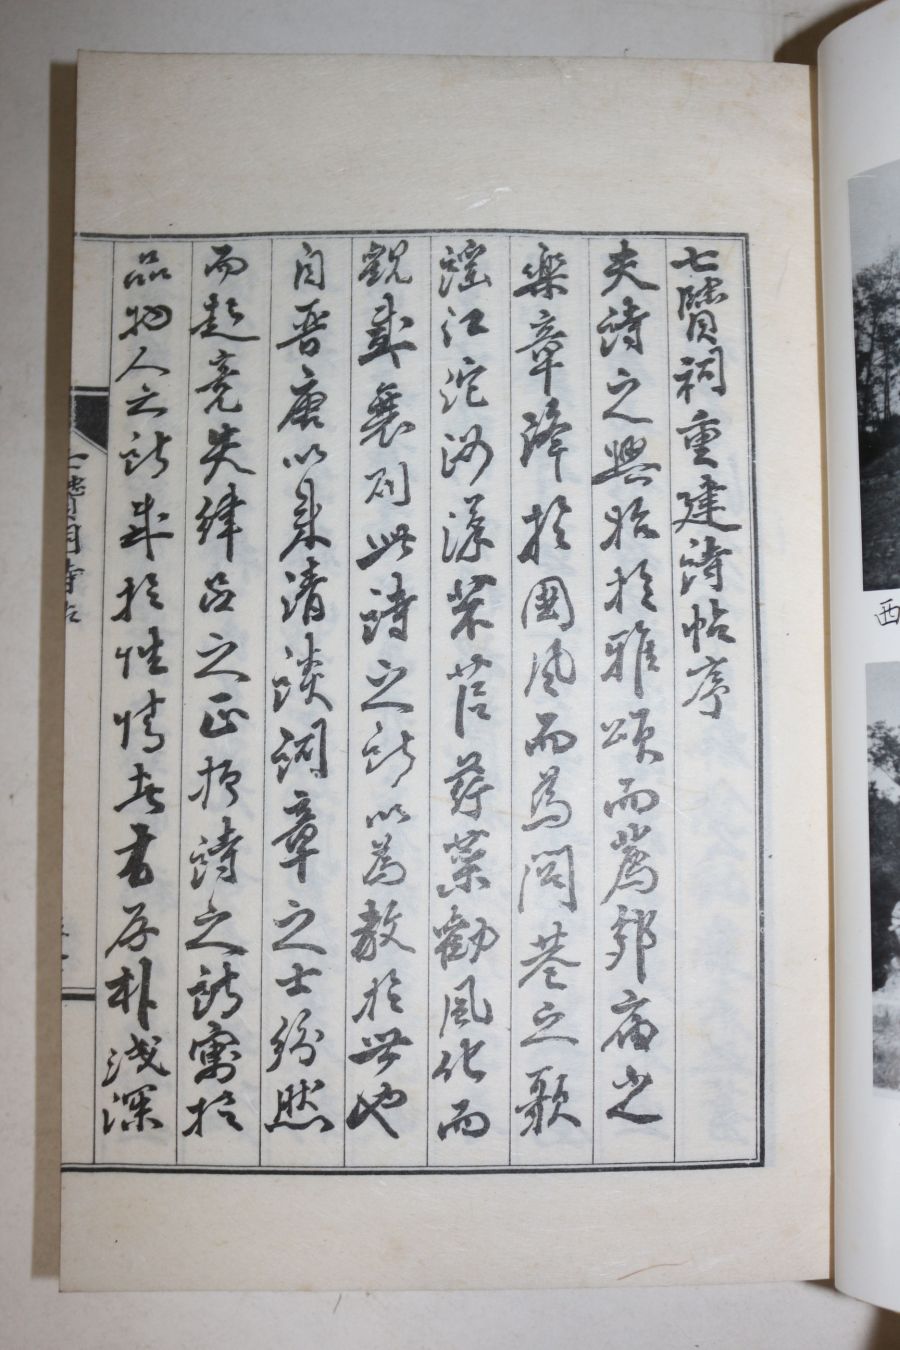 七賢祠重建詩帖序
夫詩之興始於雅頌而薦郊廟之
樂章降於國風而為閭巷之歌
謠江沱汝漢芣苢荇菜勸風化而
觀盛衰則此詩之所以為教於世也
自晉唐以來清談詞章之士紛然
而起竟失律呂之正抑詩之所寓於
品物人之所於性情者有厚朴淺深
七賢祠詩帖
西